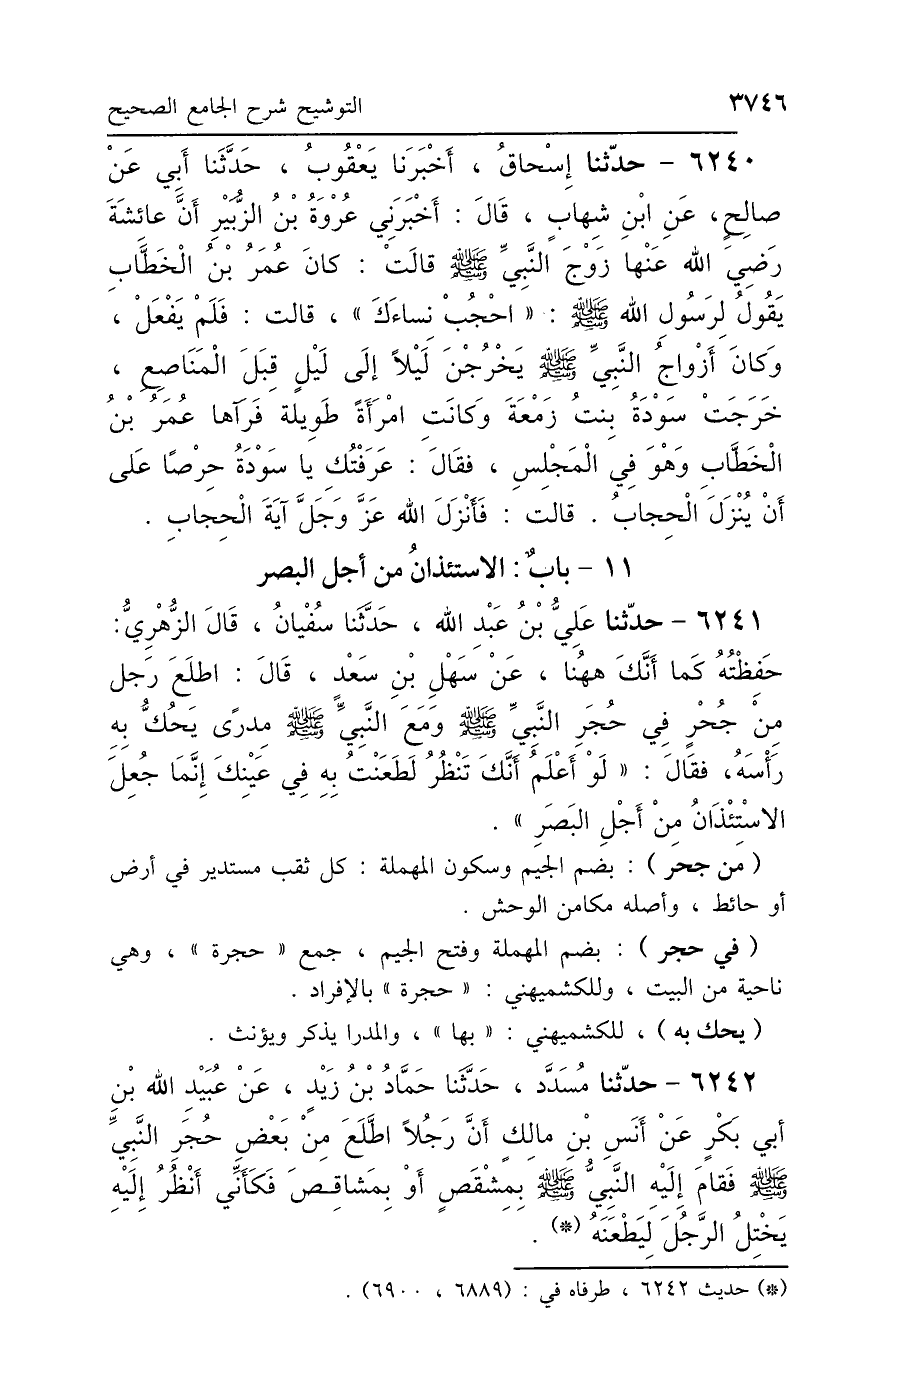 ٣٧٤٦ التوشيح شرح الجامع الصحيح
٦٢٤٠ - حدّثنا إسْحاقُ ، أَخْبَرَنَا يَعْقُوبُ ، حَدَّثَنا أَبي عَنْ
صالِحٍ، عَنِ ابْنِ شهابٍ ، قَالَ : أَخْبَرَنِي عُرْوَةُ بْنُ الزُّبَيْرِ أَنَّ عائشَةَ
رَضِيَ الله عَنْها زَوْجَ النَّبيِّ ﷺ قالَتْ : كانَ عُمَرُ بْنُ الْخَطَّابِ
يَقُولُ لِرَسُولِ الله ﷺ : « احْجُبْ نِساءَكَ » ، قالت : فَلَمْ يَفْعَلْ ،
وَكانَ أَزْواجُ النَّبيِّ ﷺ يَخْرُجْنَ لَيْلاً إلَى لَيْلٍ قِبَلَ الْمَنَاصِعِ ،
خَرَجَتْ سَوْدَةُ بِنتُ زَمْعَةَ وَكانَتِ امْرأَةً طَوِيلة فَرَآها عُمَرُ بْنُ
الْخَطَّابِ وَهْوَ فِي الْمَجْلِسِ ، فقَالَ : عَرَفْتُكِ يا سَوْدَةُ حِرْصًا عَلى
أَنْ يُنْزَلَ الْحِجابُ . قالت : فَأَنْزَلَ الله عَزَّ وَجَلَّ آيَةَ الْحِجابِ .
١١ - بابٌ : الاستئذانُ من أجل البصر
٦٢٤١ - حدّثنا عَلِيُّ بْنُ عَبْدِ الله ، حَدَّثَنا سُفْيانُ ، قَالَ الزُّهْرِيُّ:
حَفِظْتُهُ كَما أَنَّكَ هٰهُنا ، عَنْ سَهْلِ بْنِ سَعْدٍ ، قَالَ : اطلَعَ رَجل
مِنْ جُحْرٍ في حُجَرِ النَّبيِّ ﷺ وَمَعَ النَّبيِّ ﷺ مدرًى يَحُكُّ بِهِ
رَأْسَهُ، فقَالَ : « لَوْ أَعْلَمُ أَنَّكَ تَنْظُرُ لَطَعَنْتُ بِهِ فِي عَيْنِكَ إنَّمَا جُعِلَ
الاسْتِئْذَانُ مِنْ أَجْلِ البَصَرِ » .
( من جحر ) : بضم الجيم وسكون المهملة : كل ثقب مستدير في أرض
أو حائط ، وأصله مكامن الوحش .
( في حجر ) : بضم المهملة وفتح الجيم ، جمع « حجرة » ، وهي
ناحية من البيت ، وللكشميهني : « حجرة » بالإفراد .
( يحك به ) ، للكشميهني : « بها » ، والمدرا يذكر ويؤنث .
٦٢٤٢ - حدّثنا مُسَدَّد ، حَدَّثَنا حَمَّادُ بْنُ زَيْدٍ ، عَنْ عُبَيْدِ الله بْنِ
أبي بَكْرٍ عَنْ أَنَسِ بْنِ مالِكٍ أَنَّ رَجُلاً اطَّلَعَ مِنْ بَعْضِ حُجَرِ النَّبيِّ
ﷺ فَقامَ إلَيْهِ النَّبيُّ ﷺ بِمِشْقَصٍ أَوْ بِمَشاقِصَ فَكَأَنِّي أَنْظُرُ إلَيْهِ
يَخْتِلُ الرَّجُلَ لِيَطْعَنَهُ (*) .
(*) حديث ٦٢٤٢ ، طرفاه في : (٦٨٨٩ ، ٦٩٠٠) .